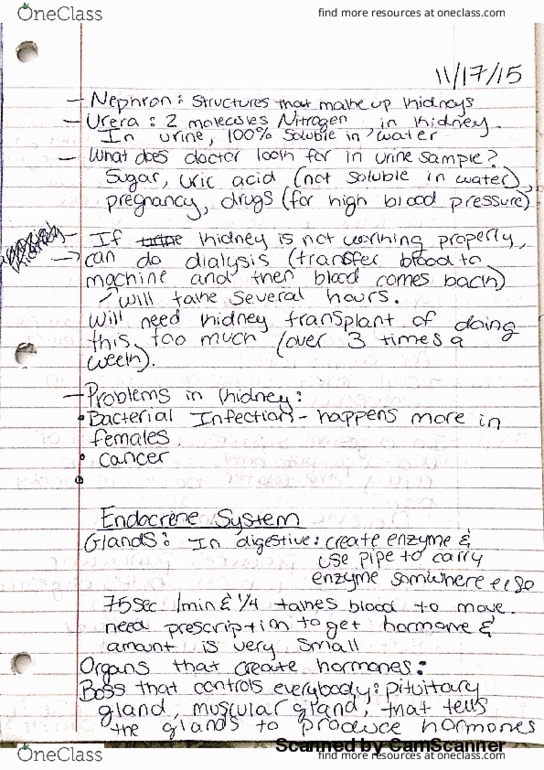 OneClass
find more resources at oneclass.com
11/17/15
- Nephron: Structures that make up kidneys
- Urera: 2 molecules Nitrogen in kidney.
In urine, 100% soluble in water
- What does doctor look for in urine sample?
Sugar, Uric acid (not soluble in water),
pregnancy, drugs (for high blood pressure)
- If kidney is not working properly,
can do dialysis (transfer blood to
machine and then blood comes back)
will take several hours.
Will need kidney transplant of doing
this too much (over 3 times a
week).
- Problems in kidney:
• Bacterial Infection - happens more in
females.
• cancer
Endocrine System
Glands: In digestive: create enzyme &
use pipe to carry
enzyme somwhere else
75sec 1min & 1/4 takes blood to move.
need prescription to get hormone &
amount is very small
Organs that create hormones:
Boss that controls everybody: pituitary
gland, muscular gland, that tells
the glands to produce hormones
Scanned by CamScanner
OneClass
find more resources at oneclass.com